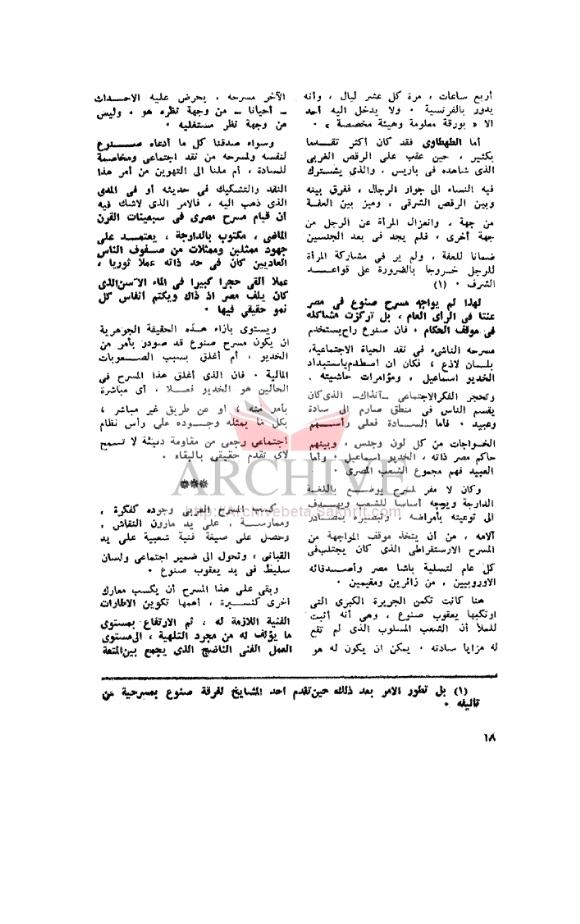 أربع ساعات ، مرة كل عشر ليال ، وأنه
يدور بالفرنسية • ولا يدخل اليه أحد
الا « بورقة معلومة وهيئة مخصصة » •
أما الطهطاوى فقد كان أكثر تقــدما
بكثير ، حين عقب على الرقص الغربى
الذى شاهده فى باريس ، والذى يشــترك
فيه النساء الى جوار الرجال ، ففرق بينه
وبين الرقص الشرقى ، وميز بين العفــة
من جهة ، وانعزال المرأة عن الرجل من
جهة أخرى ، فلم يجد فى بعد الجنسين
ضمانا للعفة ، ولم ير فى مشاركة المرأة
للرجل خروجا بالضرورة على قواعــد
الشرف • (١)
لهذا لم يواجه مسرح صنوع فى مصر
عنتا فى الرأى العام ، بل تركزت مشاكله
فى موقف الحكام • فان صنوع راح يستخدم
مسرحه الناشىء فى نقد الحياة الاجتماعية،
بلسان لاذع ، فكان أن اصطدم باستبداد
الخديو اسماعيل ، ومؤامرات حاشيته •
وتحجر الفكر الاجتماعى ــ آنذاك ــ الذى كان
يقسم الناس فى منطق صارم الى سادة
وعبيد • فأما الســادة فعلى رأســهم
الخواجات من كل لون وجنس ، وبينهم
حاكم مصر ذاته ، الخديو اسماعيل • وأما
العبيد فهم مجموع الشعب المصرى •
وكان لا مفر لمسرح يوضــع باللغــة
الدارجة ويوجه أساسا للشعب ويهــدف
الى توعيته بأمراضه وتبصيره بمصــادر
آلامه ، من أن يتخذ موقف المواجهة من
المسرح الارستقراطى الذى كان يجتلب فى
كل عام لتسلية باشا مصر وأصــدقائه
الاوروبيين ، من زائرين ومقيمين •
هنا كانت تكمن الجريرة الكبرى التى
ارتكبها يعقوب صنوع ، وهى أنه أثبت
للملأ أن الشعب المسلوب الذى لم تقع
له مزايا سادته ، يمكن ان يكون له هو
الآخر مسرحه ، يحرض عليه الاحــداث
ــ أحيانا ــ من وجهة نظره هو • وليس
من وجهة نظر مستغليه •
وسواء صدقنا كل ما ادعاه صــنوع
لنفسه ولمسرحه من نقد اجتماعى ومخاصمة
للسادة ، أم ملنا الى التهوين من أمر هذا
النقد والتشكيك فى حديثه أو فى المدى
الذى ذهب اليه ، فالامر الذى لاشك فيه
ان قيام مسرح مصرى فى سبعينات القرن
الماضى ، مكتوب بالدارجة ، يعتمــد على
جهود ممثلين وممثلات من صــفوف الناس
العاديين كان فى حد ذاته عملا ثوريا ،
عملا ألقى حجرا كبيرا فى الماء الآسن الذى
كان يلف مصر اذ ذاك ويكتم أنفاس كل
نمو حقيقى فيها •
ويستوى بازاء هــذه الحقيقة الجوهرية
ان يكون مسرح صنوع قد صودر بأمر من
الخديو ، أم أغلق بسبب الصــعوبات
المالية • فان الذى أغلق هذا المسرح فى
الحالين هو الخديو فعــلا • أى مباشرة
بأمر منه ، أو عن طريق غير مباشر ،
بكل ما يمثله وجــوده على رأس نظام
اجتماعى رجعى من مقاومة دنيئة لا تسمح
لأى تقدم حقيقى بالبقاء •
***
كسب المسرح العربى وجوده كفكرة ،
وممارســة ، على يد مارون النقاش ،
وحصل على صيغة فنية شعبية على يد
القبانى ، وتحول الى ضمير اجتماعى ولسان
سليط فى يد يعقوب صنوع •
وبقى على هذا المسرح أن يكسب معارك
أخرى كثــيرة ، أهمها تكوين الاطارات
الفنية اللازمة له ، ثم الارتفاع بمستوى
ما يؤلف له من مجرد التلهية ، الى مستوى
العمل الفنى الناضج الذى يجمع بين المتعة
(١) بل تطور الامر بعد ذلك حين تقدم احد المشايخ لفرقة صنوع بمسرحية من
تأليفه •
١٨
ARCHIVE
http://Archivebeta.Sakhrit.com